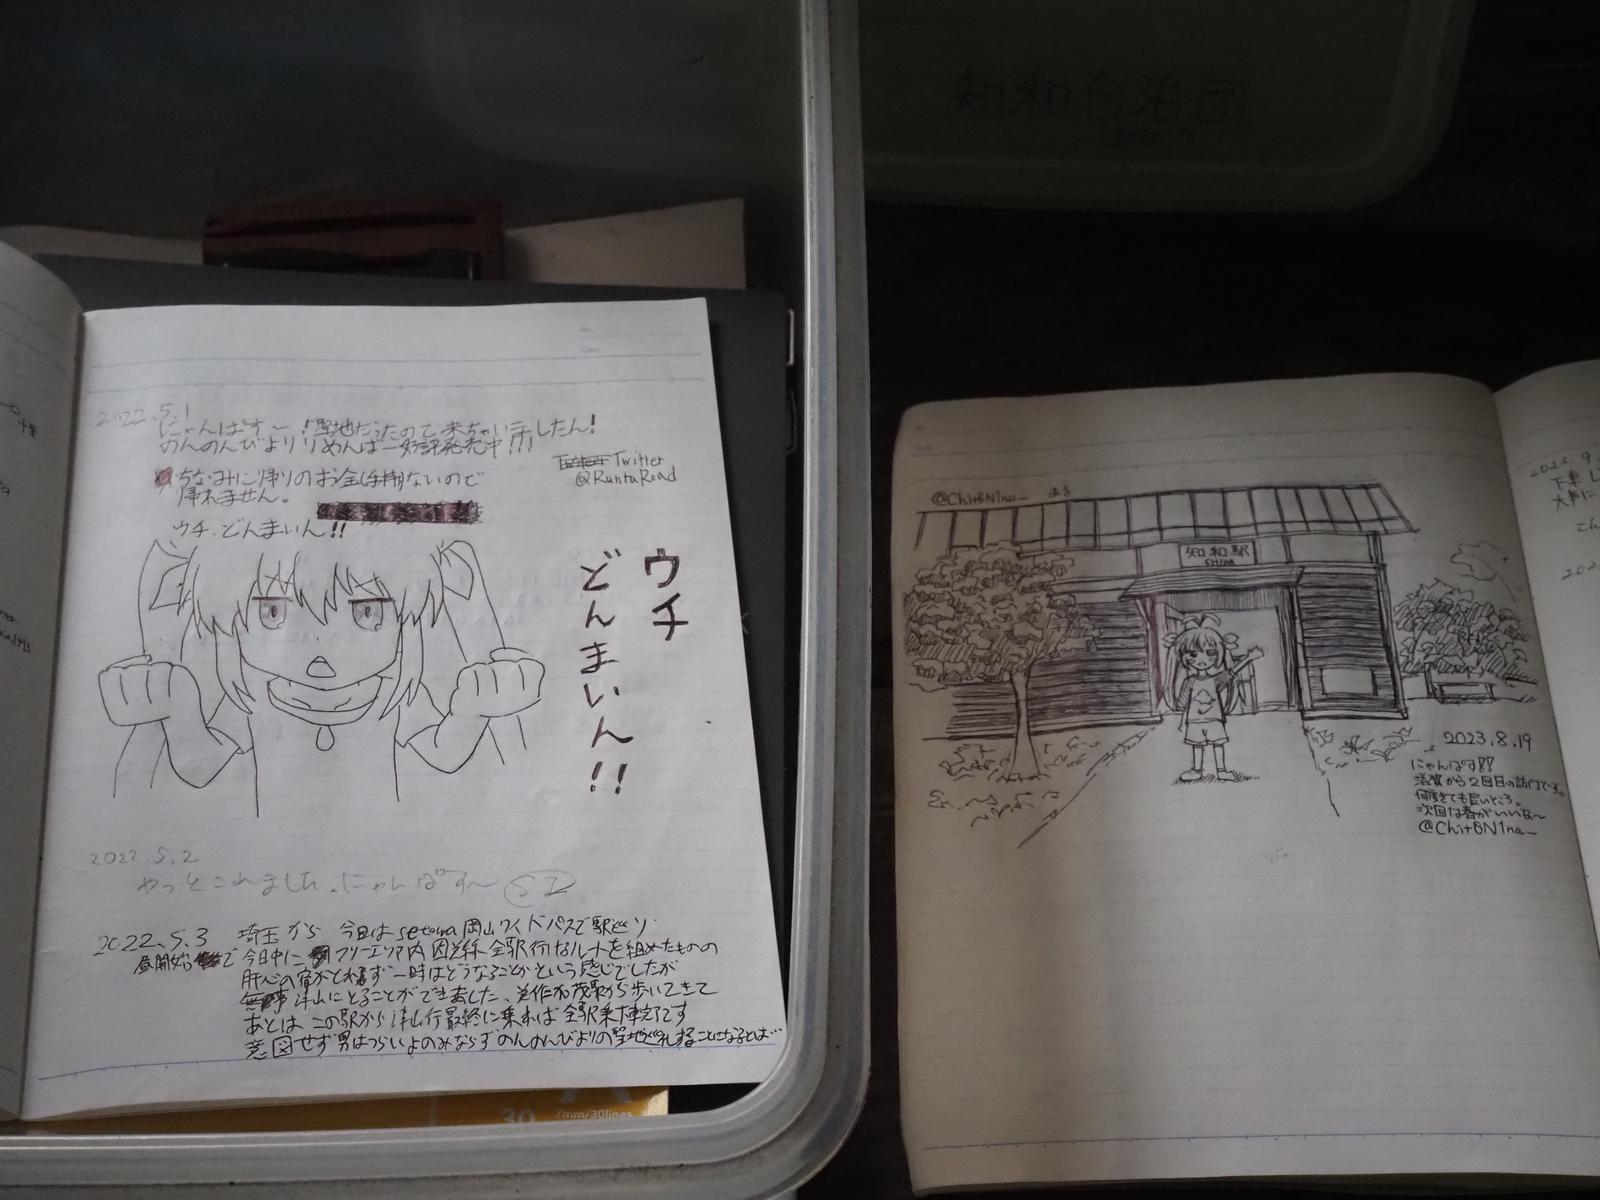 知和自治団
2022.5.1
にゃんぱすー!聖地だったので来ちゃいましたん!
のんのんびより りめんばー好評発売中!!!
Twitter
@RuntaRoad
ちなみに帰りのお金は持ってないので
帰れません。
ウチ、どんまいん!!
ウチ
どんまいん!!
2022.5.2
やっとこれました。にゃんぱす〜
2022.5.3 埼玉から 今日はsetowa岡山ワイドパスで駅巡り
昼開始で今日中にフリーエリア内 因美線 全駅行けるルートを組めたものの
肝心の宿がとれず一時はどうなることかという感じでしたが
無事津山にとることができました、美作加茂駅から歩いてきて
あとは この駅から津山行最終に乗れば 全駅乗下車完了です
意図せず男はつらいよのみならずのんのんびよりの聖地巡礼することになるとは
30 7mm/30lines
@Chit6N1na_
知和駅
CHIWA
2023.8.19
にゃんぱす!!
滋賀から2回目の訪問です。
何度きても良いところ。
次回は春がいいな〜
@Chit6N1na_
下車し
大事に